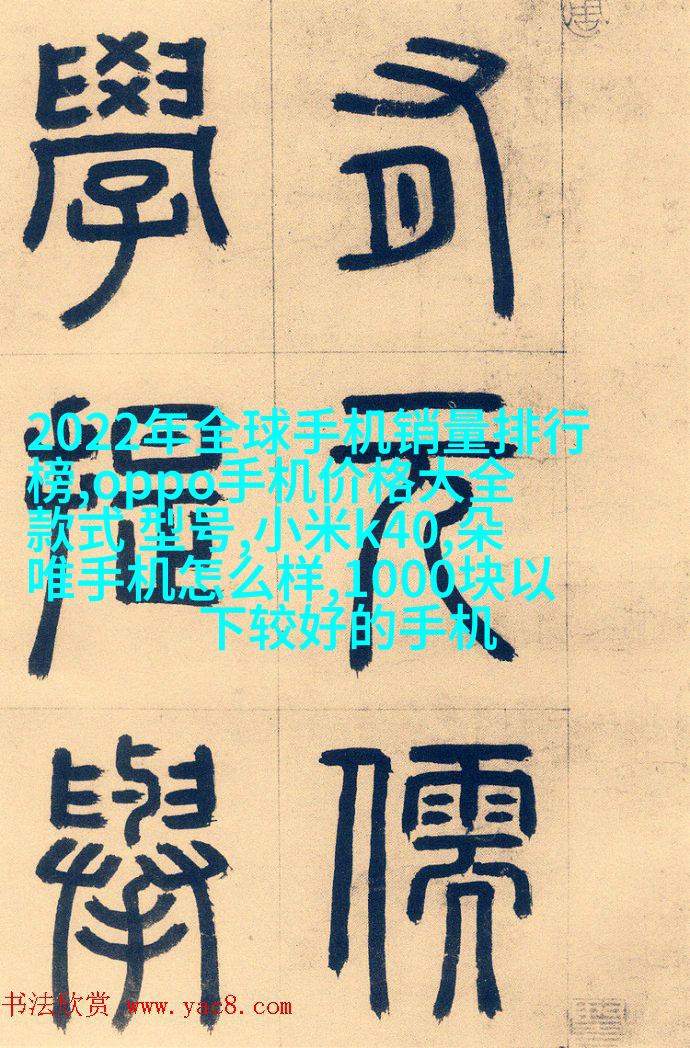 有元儒
學提舉
2022年全球手机销量排行
榜,oppo手机价格大全
款式 型号,小米k40,朵
唯手机怎么样,1000块以
下较好的手机
书法欣赏 www.yac8.com